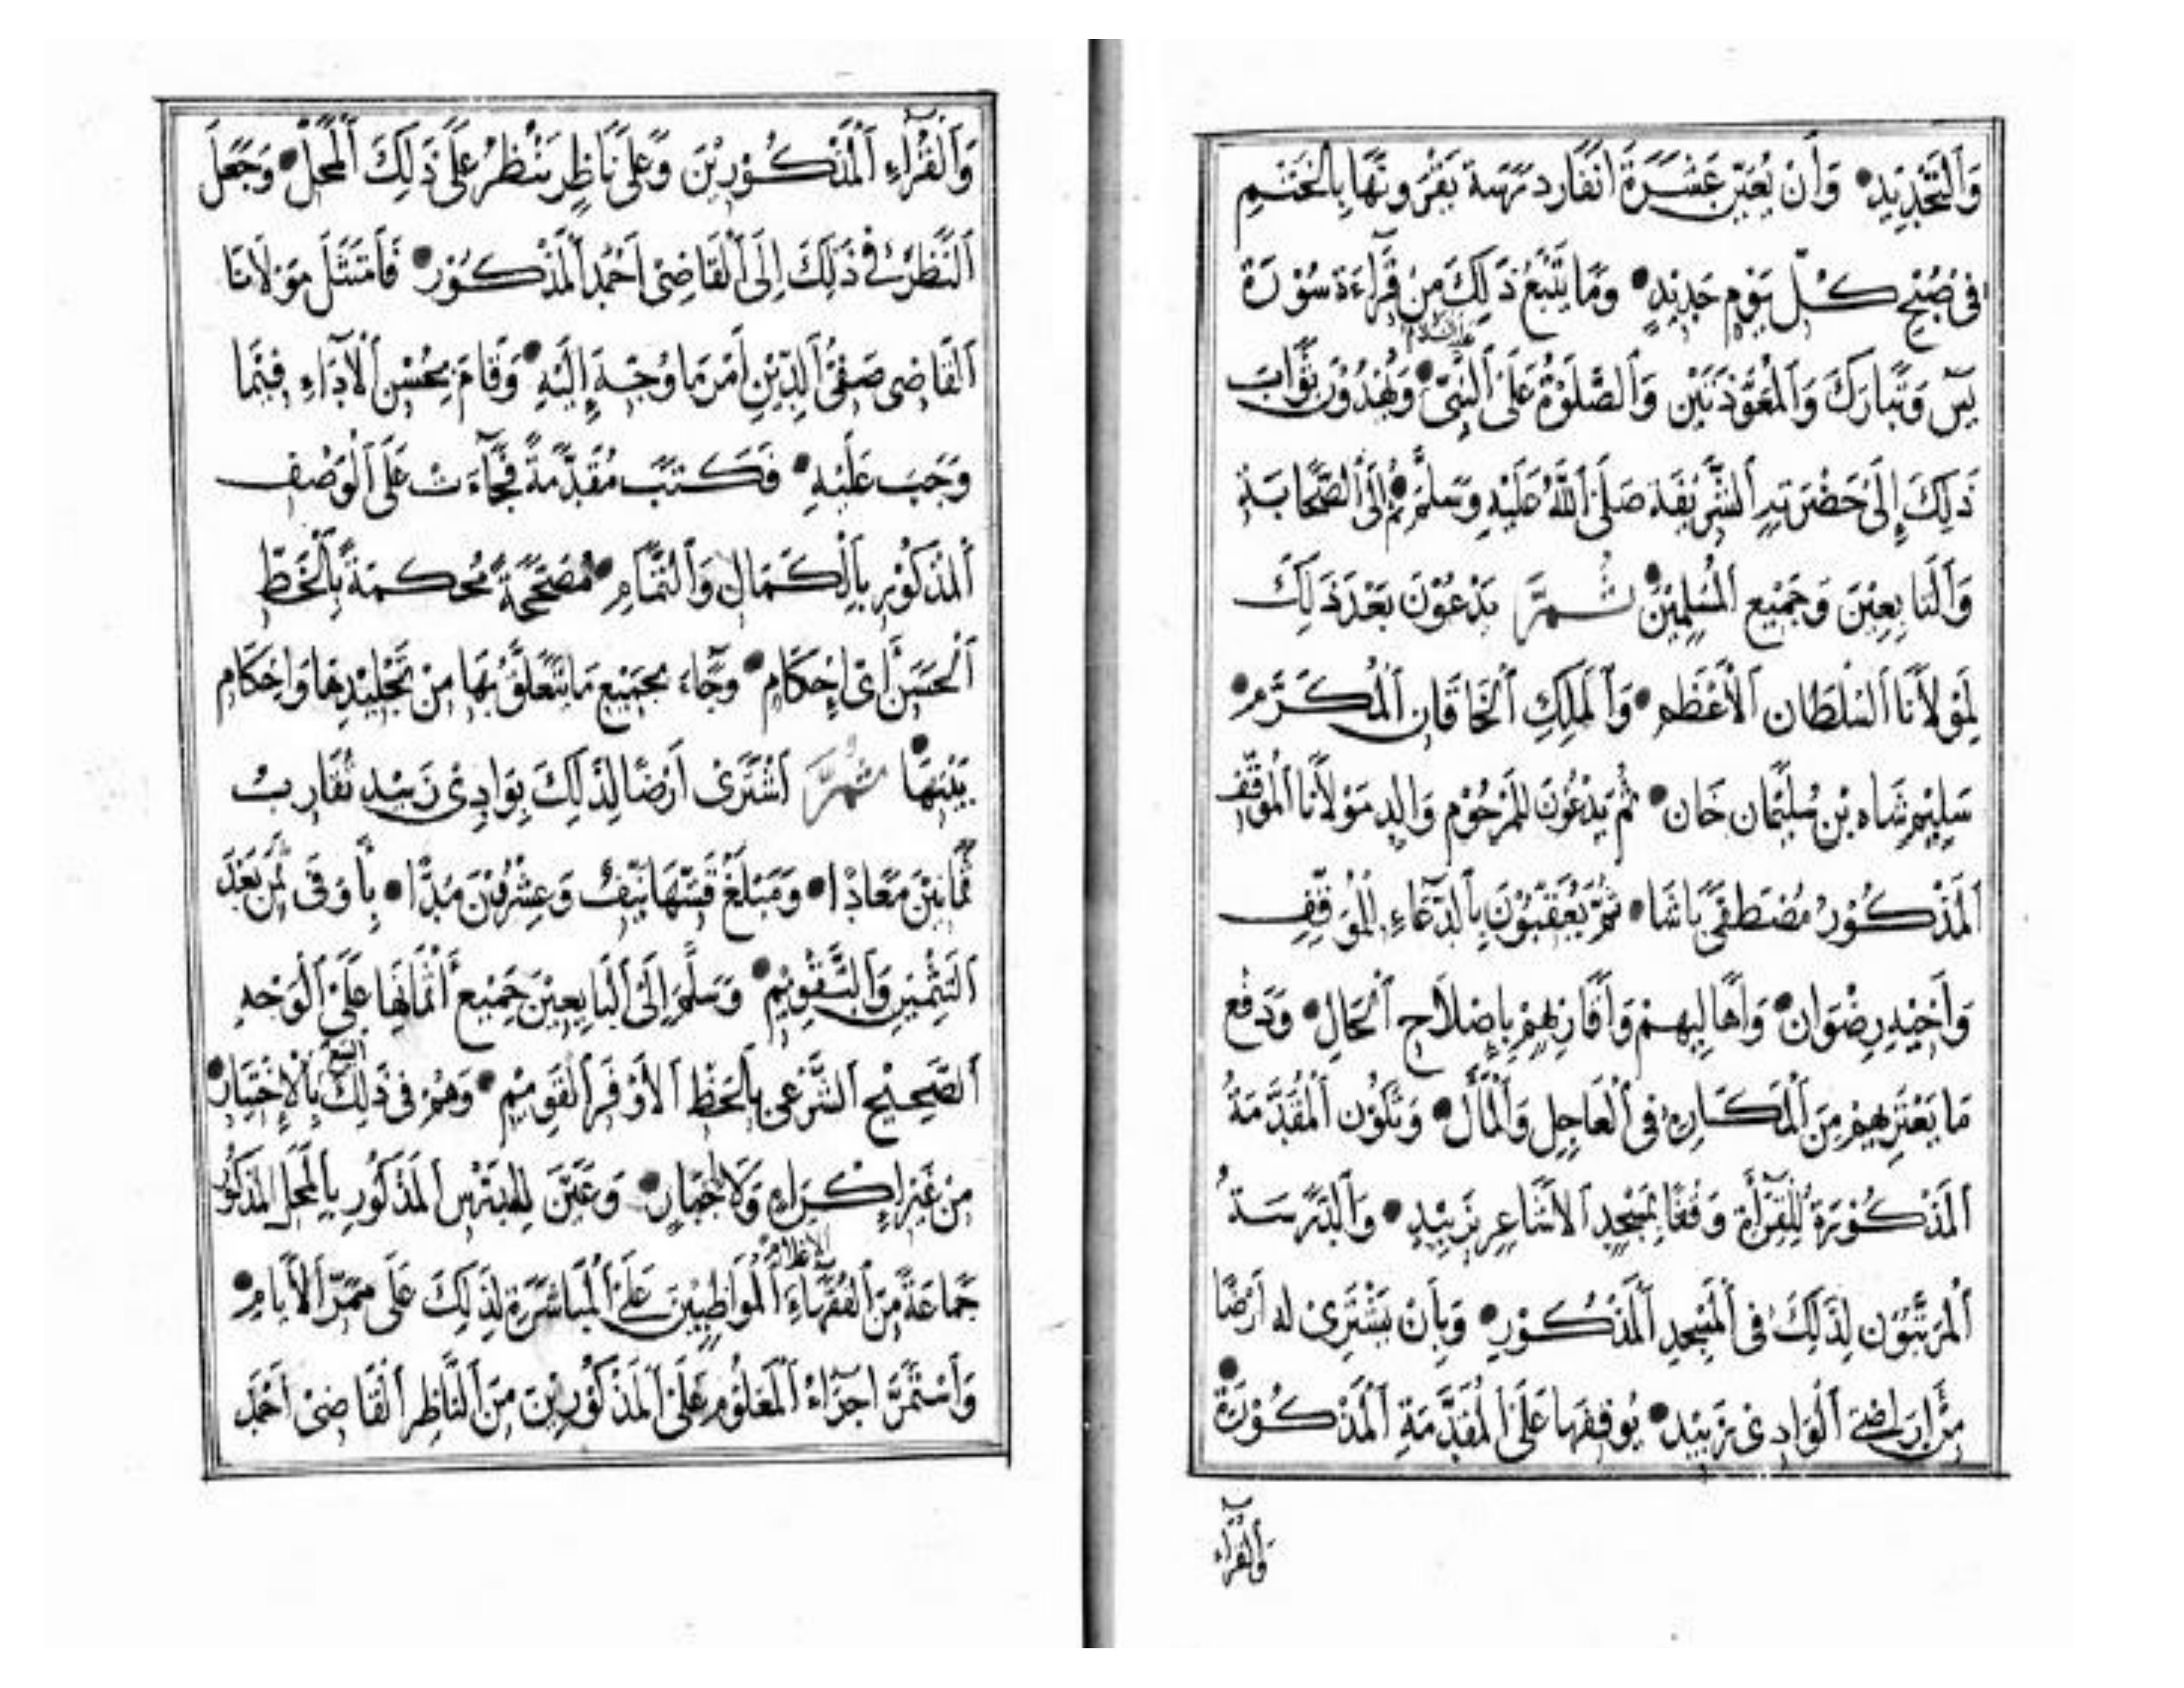 وَالتَّجْدِيْدِ • وَأَنْ يُعَيَّنَ عَشَرَةَ أَنْفَارٍ دَرَسَة يَقْرَءُونَهَا بِالْخَتْمِ
فِى صُبْحِ كُلِّ يَوْمٍ جَدِيْدٍ • وَمَا يَتْبَعُ ذٰلِكَ مِنْ قِرَاءَةِ سُوْرَةِ
يٰسٓ وَتَبَارَكَ وَالْمُعَوَّذَتَيْنِ وَالصَّلَوٰةُ عَلَى النَّبِىِّ عليه السلام • وَيُهْدُوْنَ ثَوَابَ
ذٰلِكَ إِلَىٰ حَضْرَتِهِ الشَّرِيْفَة صَلَّى اللّٰهُ عَلَيْهِ وَسَلَّمَ • ثُمَّ إِلَى الصَّحَابَةِ
وَالتَّابِعِيْنَ وَجَمِيْعِ الْمُسْلِمِيْنَ • ثُمَّ يَدْعُوْنَ بَعْدَ ذَلِكَ
لِمَوْلَانَا السُّلْطَانِ الْأَعْظَمِ • وَالْمَلِكِ الْخَاقَانِ الْمُكَرَّمِ •
سَلِيْم شَاه بْنِ سُلَيْمَان خَان • ثُمَّ يَدْعُوْنَ لِلْمَرْحُوْمِ وَالِدِ مَوْلَانَا الْمُوَقِّفِ
الْمَذْكُوْرِ مُصْطَفَى بَاشَا • ثُمَّ يَعْقُبُوْنَ بِالدُّعَاءِ لِلْمُوَقِّفِ
وَأَخِيْهِ رِضْوَان • وَأَهَالِيهِمْ وَأَقَارِبِهِمْ بِإِصْلَاحِ الْحَالِ • وَدَفْعِ
مَا يَعْتَرِيهِمْ مِنَ الْمَكَارِهِ فِى الْعَاجِلِ وَالْمَآلِ • وَتَكُوْنُ الْمُقَدَّمَةُ
الْمَذْكُوْرَةُ لِلْقِرَاءَةِ وَقْفًا بِمَسْجِدِ الْأَشَاعِرِ بِزَبِيْدِ • وَالدَّرَسَةُ
الْمُرَتَّبُوْنَ لِذَلِكَ فِى الْمَسْجِدِ الْمَذْكُوْرِ • وَبِأَنْ يَشْتَرِىَ لَهُ أَرْضًا •
مِنْ أَرَاضِى الْوَادِى زَبِيْد • يُوقِفهَا عَلَى الْمُقَدَّمَةِ الْمَذْكُوْرَةِ
وَالْقُرَّاءِ
وَالْقُرَّاءِ الْمَذْكُوْرِيْنَ وَعَلَى نَاظِرٍ يَنْظُرُ عَلَى ذَلِكَ الْمَحَلِّ • وَجَعَلَ
النَّظَرَ فِى ذَلِكَ إِلَى الْقَاضِىْ أَحْمَد الْمَذْكُوْر • فَامْتَثَلَ مَوْلَانَا
الْقَاضِى صَفِىُّ الدِّيْنِ أَمْرَ مَا وُجِّهَ إِلَيْهِ • وَقَامَ بِحُسْنِ الْأَدَاءِ فِيْمَا
وَجَبَ عَلَيْهِ • فَكَتَبَ مُقَدَّمَةً فَجَآءَتْ عَلَى الْوَصْفِ
الْمَذْكُوْرِ بِالْكَمَالِ وَالتَّمَامِ • مُصَحَّحَةً مُحْكَمَةً بِالْخَطِّ
الْحَسَنِ أَىَّ إِحْكَامٍ • وَجَاءَ بِجَمِيْعِ مَا يَتَعَلَّقُ بِهَا مِنْ تَجْلِيْدِهَا وَإِحْكَامِ
بَيْتِهَا • ثُمَّ اشْتَرَى أَرْضًا لِذَلِكَ بِوَادِىْ زَبِيْد تُقَارِبُ
ثَمَانِيْنَ مَعَادًا • وَمَبْلَغُ قِيْمَتِهَا نَيِّفٌ وَعِشْرُوْنَ مُدًّا • بِأَوْفَى ثَمَنٍ بَعْدَ
التَّثْمِيْنِ وَالتَّقْوِيْمِ • وَسَلَّمَ إِلَى الْبَايِعِيْنَ جَمِيْعَ أَثْمَانِهَا عَلَى الْوَجْهِ
الصَّحِيْحِ الشَّرْعِى بِالْحَظِّ الْأَوْفَرِ الْقَوِيْمِ • وَهُمْ فِى ذَلِكَ البيع بِالْإِخْتِيَارِ •
مِنْ غَيْرِ إِكْرَاهٍ وَلَا إِجْبَارٍ • وَعَيَّنَ لِلْمُدَرَّسِ الْمَذْكُوْرِ بِالْمَحَلِّ الْمَذْكُوْرِ
جَمَاعَةً مِنَ الْفُقَهَاءِ الاعلام الْمُوَاظِبِيْنَ عَلَى الْمُبَاشَرَةِ لِذَلِكَ عَلَى مَمَرِّ الْأَيَّامِ •
وَاسْتَمَرَّ إِجْرَاءُ الْمَعْلُوْمِ عَلَى الْمَذْكُوْرِيْنَ مِنَ النَّاظِرِ الْقَاضِىْ أَحْمَد